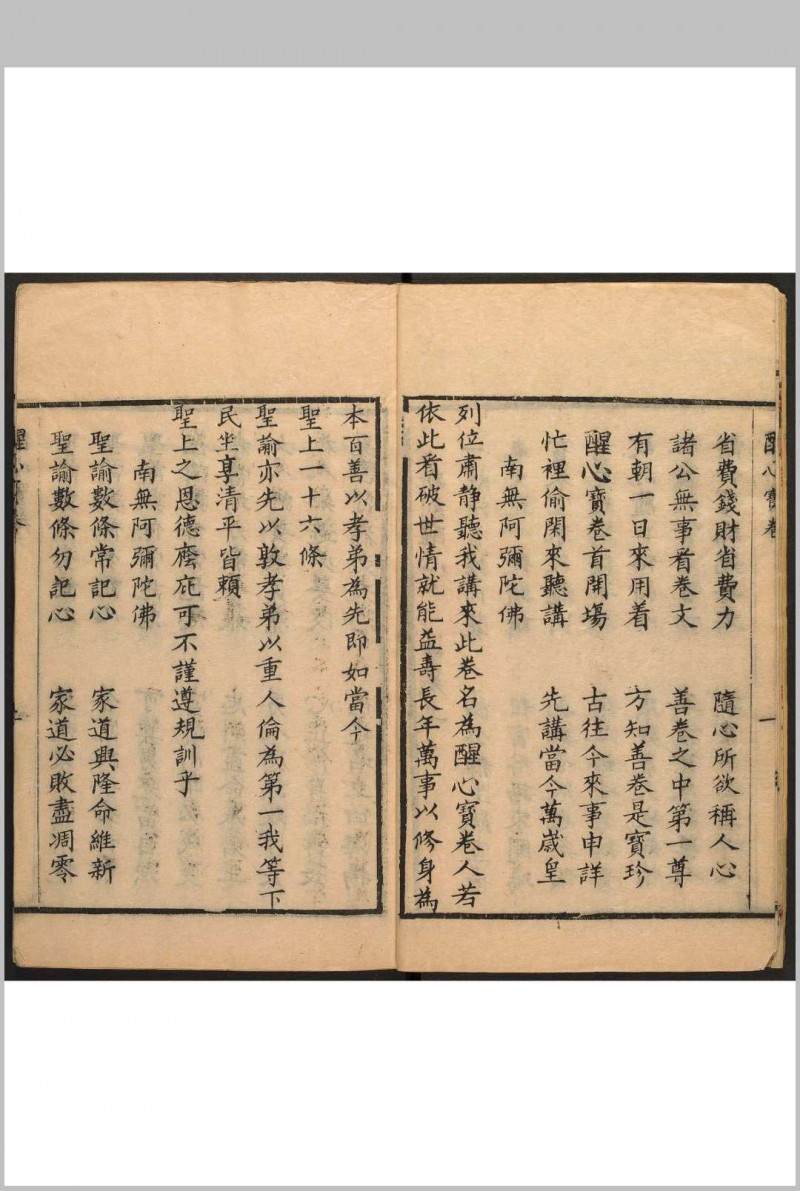 醒心寶卷 一
省費錢財省費力 隨心所欲稱人心
諸公無事看卷文 善卷之中第一尊
有朝一日來用着 方知善卷是寶珍
醒心寶卷首開場 古往今來事申詳
忙裡偷閑來聽講 先講當今萬歲皇
南無阿彌陀佛
列位肅靜聽我講來此卷名為醒心寶卷人若
依此看破世情就能益壽長年萬事以修身為
本百善以孝弟為先即如當今
聖上一十六條
聖諭亦先以敦孝弟以重人倫為第一我等下
民坐享清平皆賴
聖上之恩德庥庇可不謹遵規訓乎
南無阿彌陀佛
聖諭數條常記心 家道興隆命維新
聖諭數條勿記心 家道必敗盡凋零